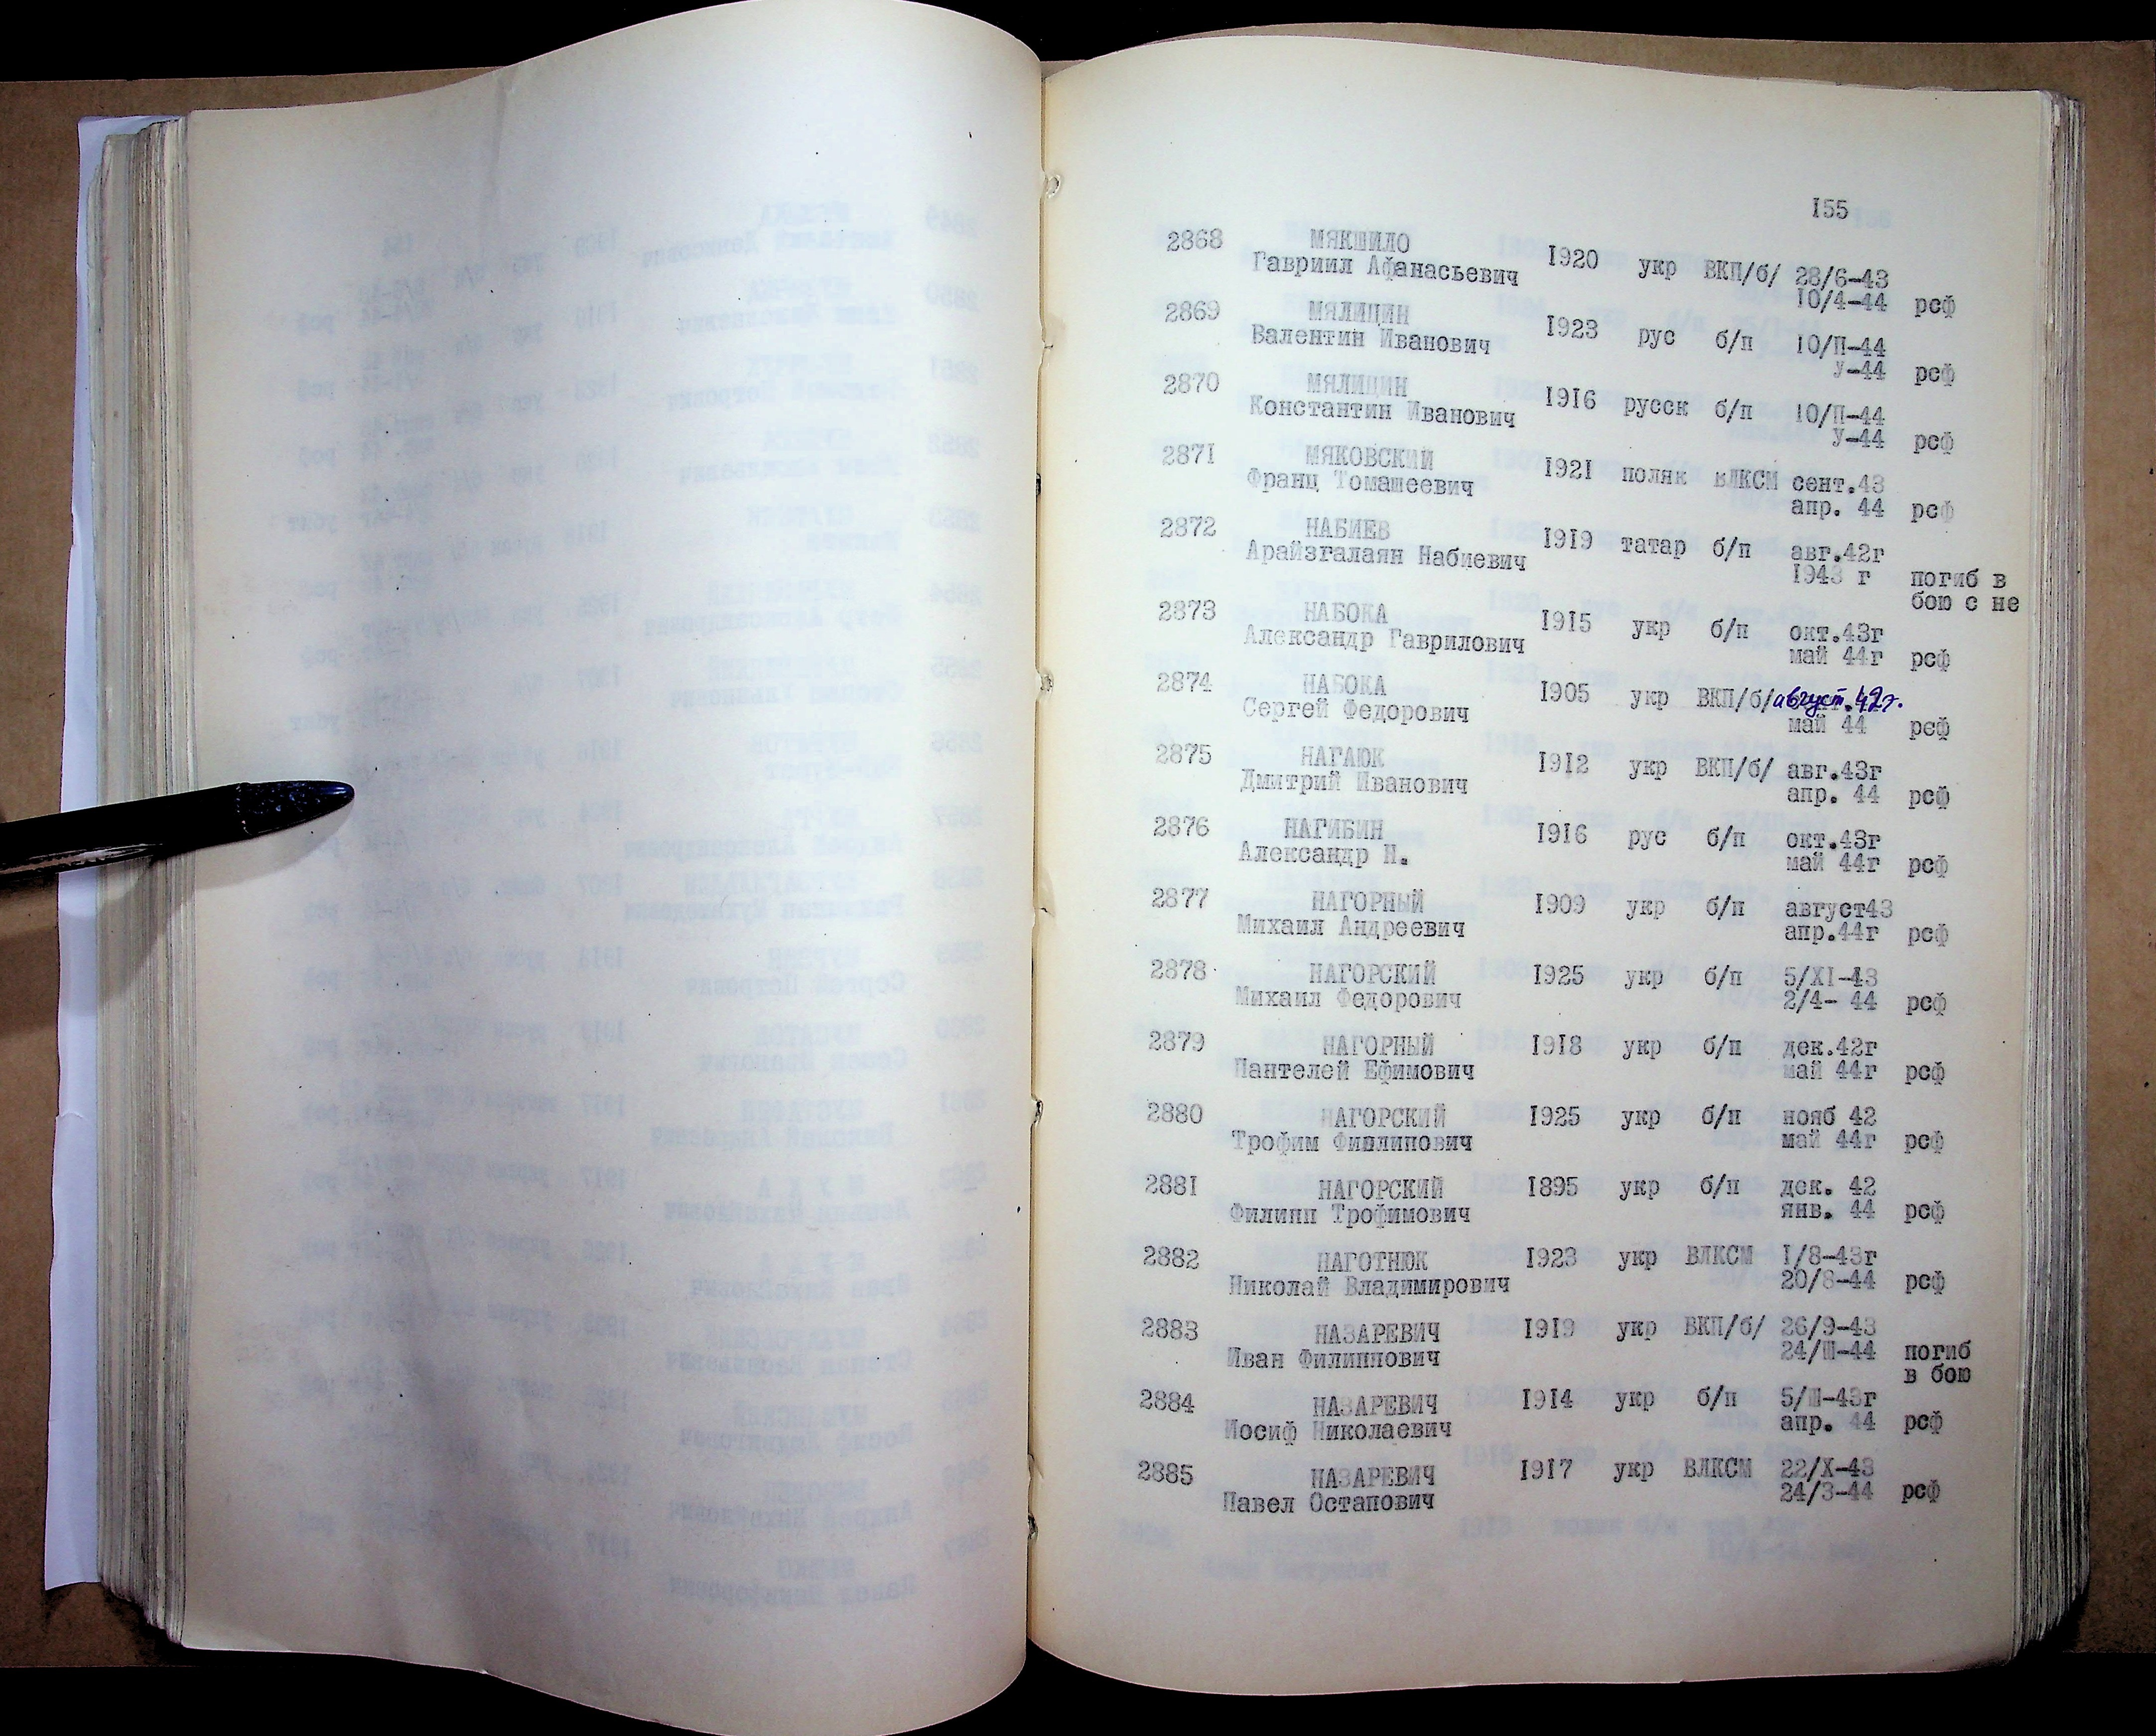 155
2868 МЯКШИЛО 1920 укр ВКП/б/ 28/6-43
Гавриил Афанасьевич 10/4-44 рсф
2869 МЯЛИЦИН 1923 рус б/п 10/П-44
Валентин Иванович У-44 рсф
2870 МЯЛИЦИН 1916 русск б/п 10/П-44
Константин Иванович У-44 рсф
2871 МЯКОВСКИЙ 1921 поляк ВЛКСМ сент.43
Франц Томашеевич апр. 44 рсф
2872 НАБИЕВ 1919 татар б/п авг.42г
Арайзгалаян Набиевич 1943 г погиб в
бою с не
2873 НАБОКА 1915 укр б/п окт.43г
Александр Гаврилович май 44г рсф
2874 НАБОКА 1905 укр ВКП/б/ август 42г.
Сергей Федорович май 44 рсф
2875 НАГАЮК 1912 укр ВКП/б/ авг.43г
Дмитрий Иванович апр. 44 рсф
2876 НАГИБИН 1916 рус б/п окт.43г
Александр Н. май 44г рсф
2877 НАГОРНЫЙ 1909 укр б/п август43
Михаил Андреевич апр.44г рсф
2878 НАГОРСКИЙ 1925 укр б/п 5/XI-43
Михаил Федорович 2/4- 44 рсф
2879 НАГОРНЫЙ 1918 укр б/п дек.42г
Пантелей Ефимович май 44г рсф
2880 НАГОРСКИЙ 1925 укр б/п нояб 42
Трофим Филлипович май 44г рсф
2881 НАГОРСКИЙ 1895 укр б/п дек. 42
Филипп Трофимович янв. 44 рсф
2882 НАГОТНЮК 1923 укр ВЛКСМ 1/8-43г
Николай Владимирович 20/8-44 рсф
2883 НАЗАРЕВИЧ 1919 укр ВКП/б/ 26/9-43
Иван Филиппович 24/Ш-44 погиб
в бою
2884 НАЗАРЕВИЧ 1914 укр б/п 5/Ш-43г
Иосиф Николаевич апр. 44 рсф
2885 НАЗАРЕВИЧ 1917 укр ВЛКСМ 22/X-43
Павел Остапович 24/3-44 рсф